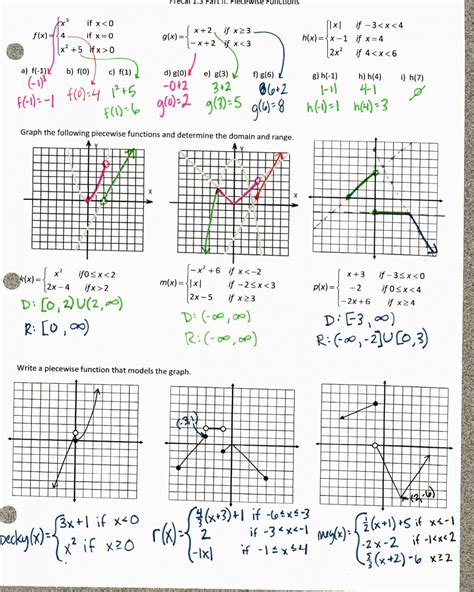 Precal 1.3 Part II: Piecewise Functions
f(x)= { x³ if x<0
4 if x=0
x²+5 if x>0
g(x)= { x+2, if x≥3
-x+2, if x<3
h(x)= { |x| if -3<x<4
x-1 if x=4
2x² if 4<x<6
a) f(-1) b) f(0) c) f(1) d) g(0) e) g(3) f) g(6) g) h(-1) h) h(4) i) h(7)
(-1)³ f(0)=4 1²+5 -0+2 3+2 6+2 |-1| 4-1 ∅
f(-1)=-1 f(1)=6 g(0)=2 g(3)=5 g(6)=8 h(-1)=1 h(4)=3
Graph the following piecewise functions and determine the domain and range.
Y
X
Y
X
k(x)= { x² if 0≤x<2
2x-4 if x>2
m(x)= { -x²+6 if x<-2
|x| if -2≤x<3
2x-5 if x≥3
p(x)= { x+3 if -3≤x<0
-2 if 0≤x<4
-2x+6 if x≥4
D: [0,2)U(2,∞) D: (-∞,∞) D: [-3,∞)
R: [0,∞) R: (-∞,∞) R: (-∞,-2]U[0,3)
Write a piecewise function that models the graph.
(2,-6)
Becky(x)= { 3x+1 if x<0
x² if x≥0
r(x)= { 4/3(x+3)+1 if -6≤x≤-3
2 if -3<x<-1
-|x| if -1≤x≤4
{ 1/2(x+1)+5 if x<-1
-2x-2 if -1<x<2
5/3(x+2)-6 x≥2